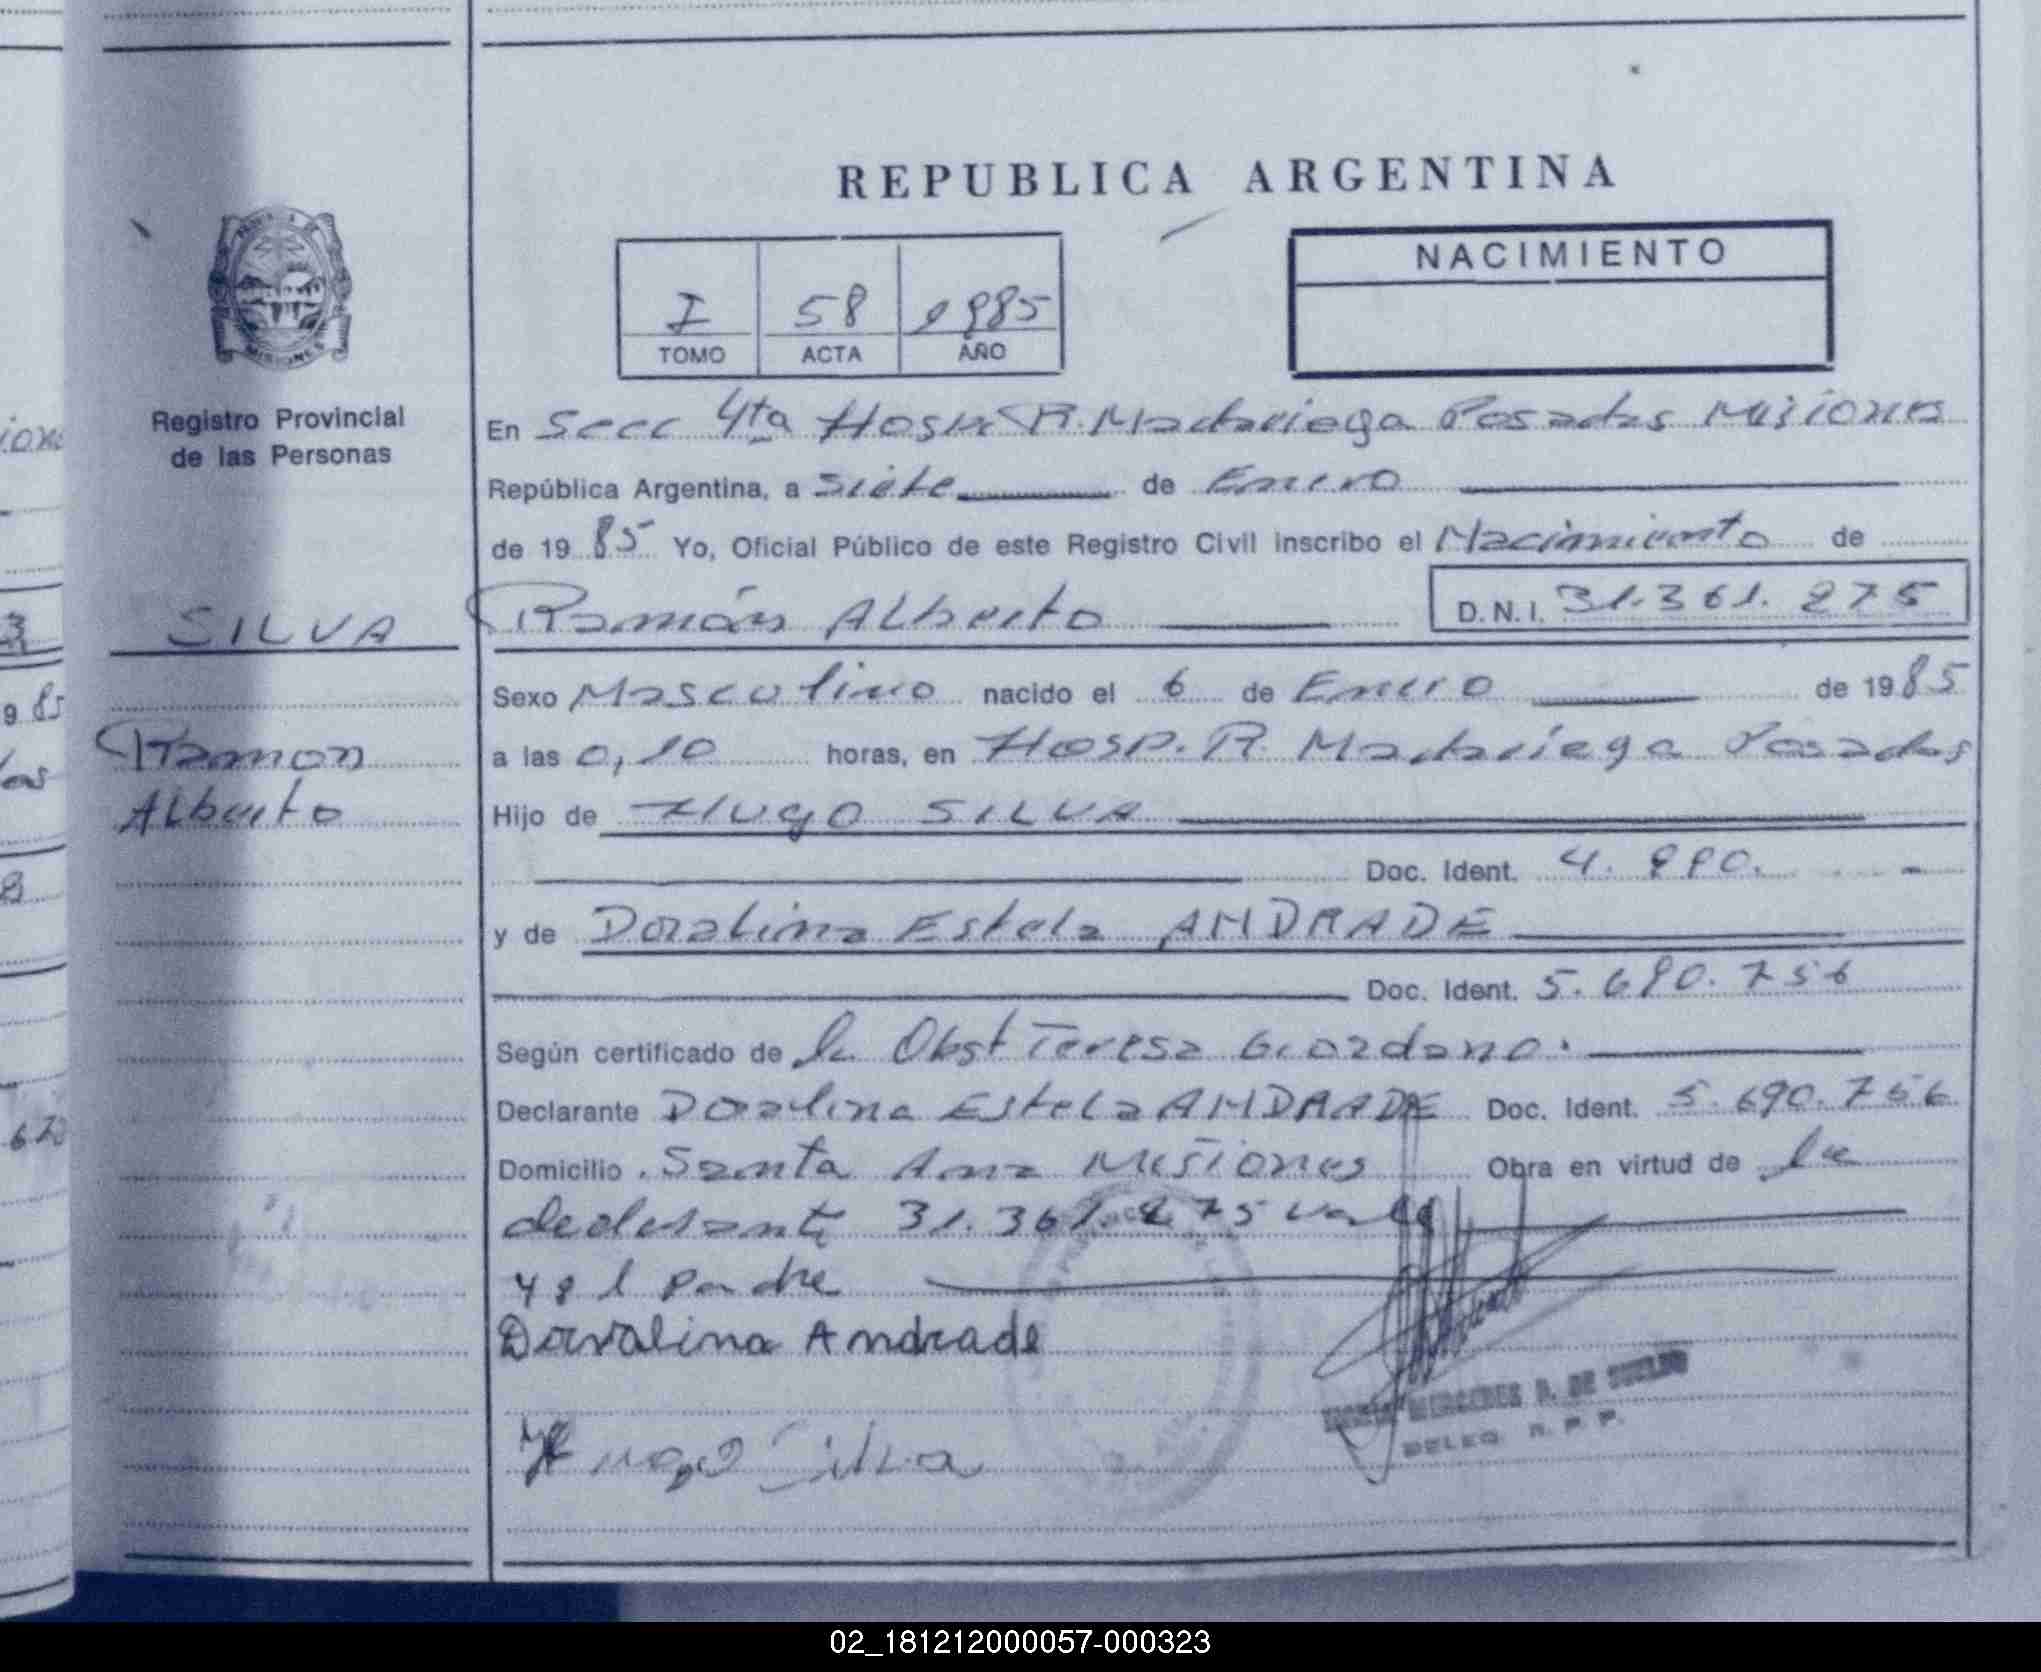 REPUBLICA ARGENTINA
NACIMIENTO
I 58 1985
TOMO ACTA AÑO
MISIONES
Registro Provincial
de las Personas
En Secc 4ta Hosp R. Madariega Posadas Misiones
República Argentina, a siete de Enero
de 1985 Yo, Oficial Público de este Registro Civil inscribo el Nacimiento de
SILVA
Ramón Alberto D.N.I. 31.361.275
Sexo Masculino nacido el 6 de Enero de 1985
Ramon
Alberto
a las 0,10 horas, en Hosp. R. Madariega Posadas
Hijo de Hugo SILVA
Doc. Ident.
y de Doralina Estela ANDRADE
Doc. Ident. 5.690.756
Según certificado de la Obst Teresa Giordano.
Declarante Doralina Estela ANDRADE Doc. Ident. 5.690.756
Domicilio Santa Ana Misiones Obra en virtud de la
declarante 31.361.275 vale
y el padre
Doralina Andrade
Hugo Silva
MERCEDES DE
DELEG. R. P. P.
02_181212000057-000323